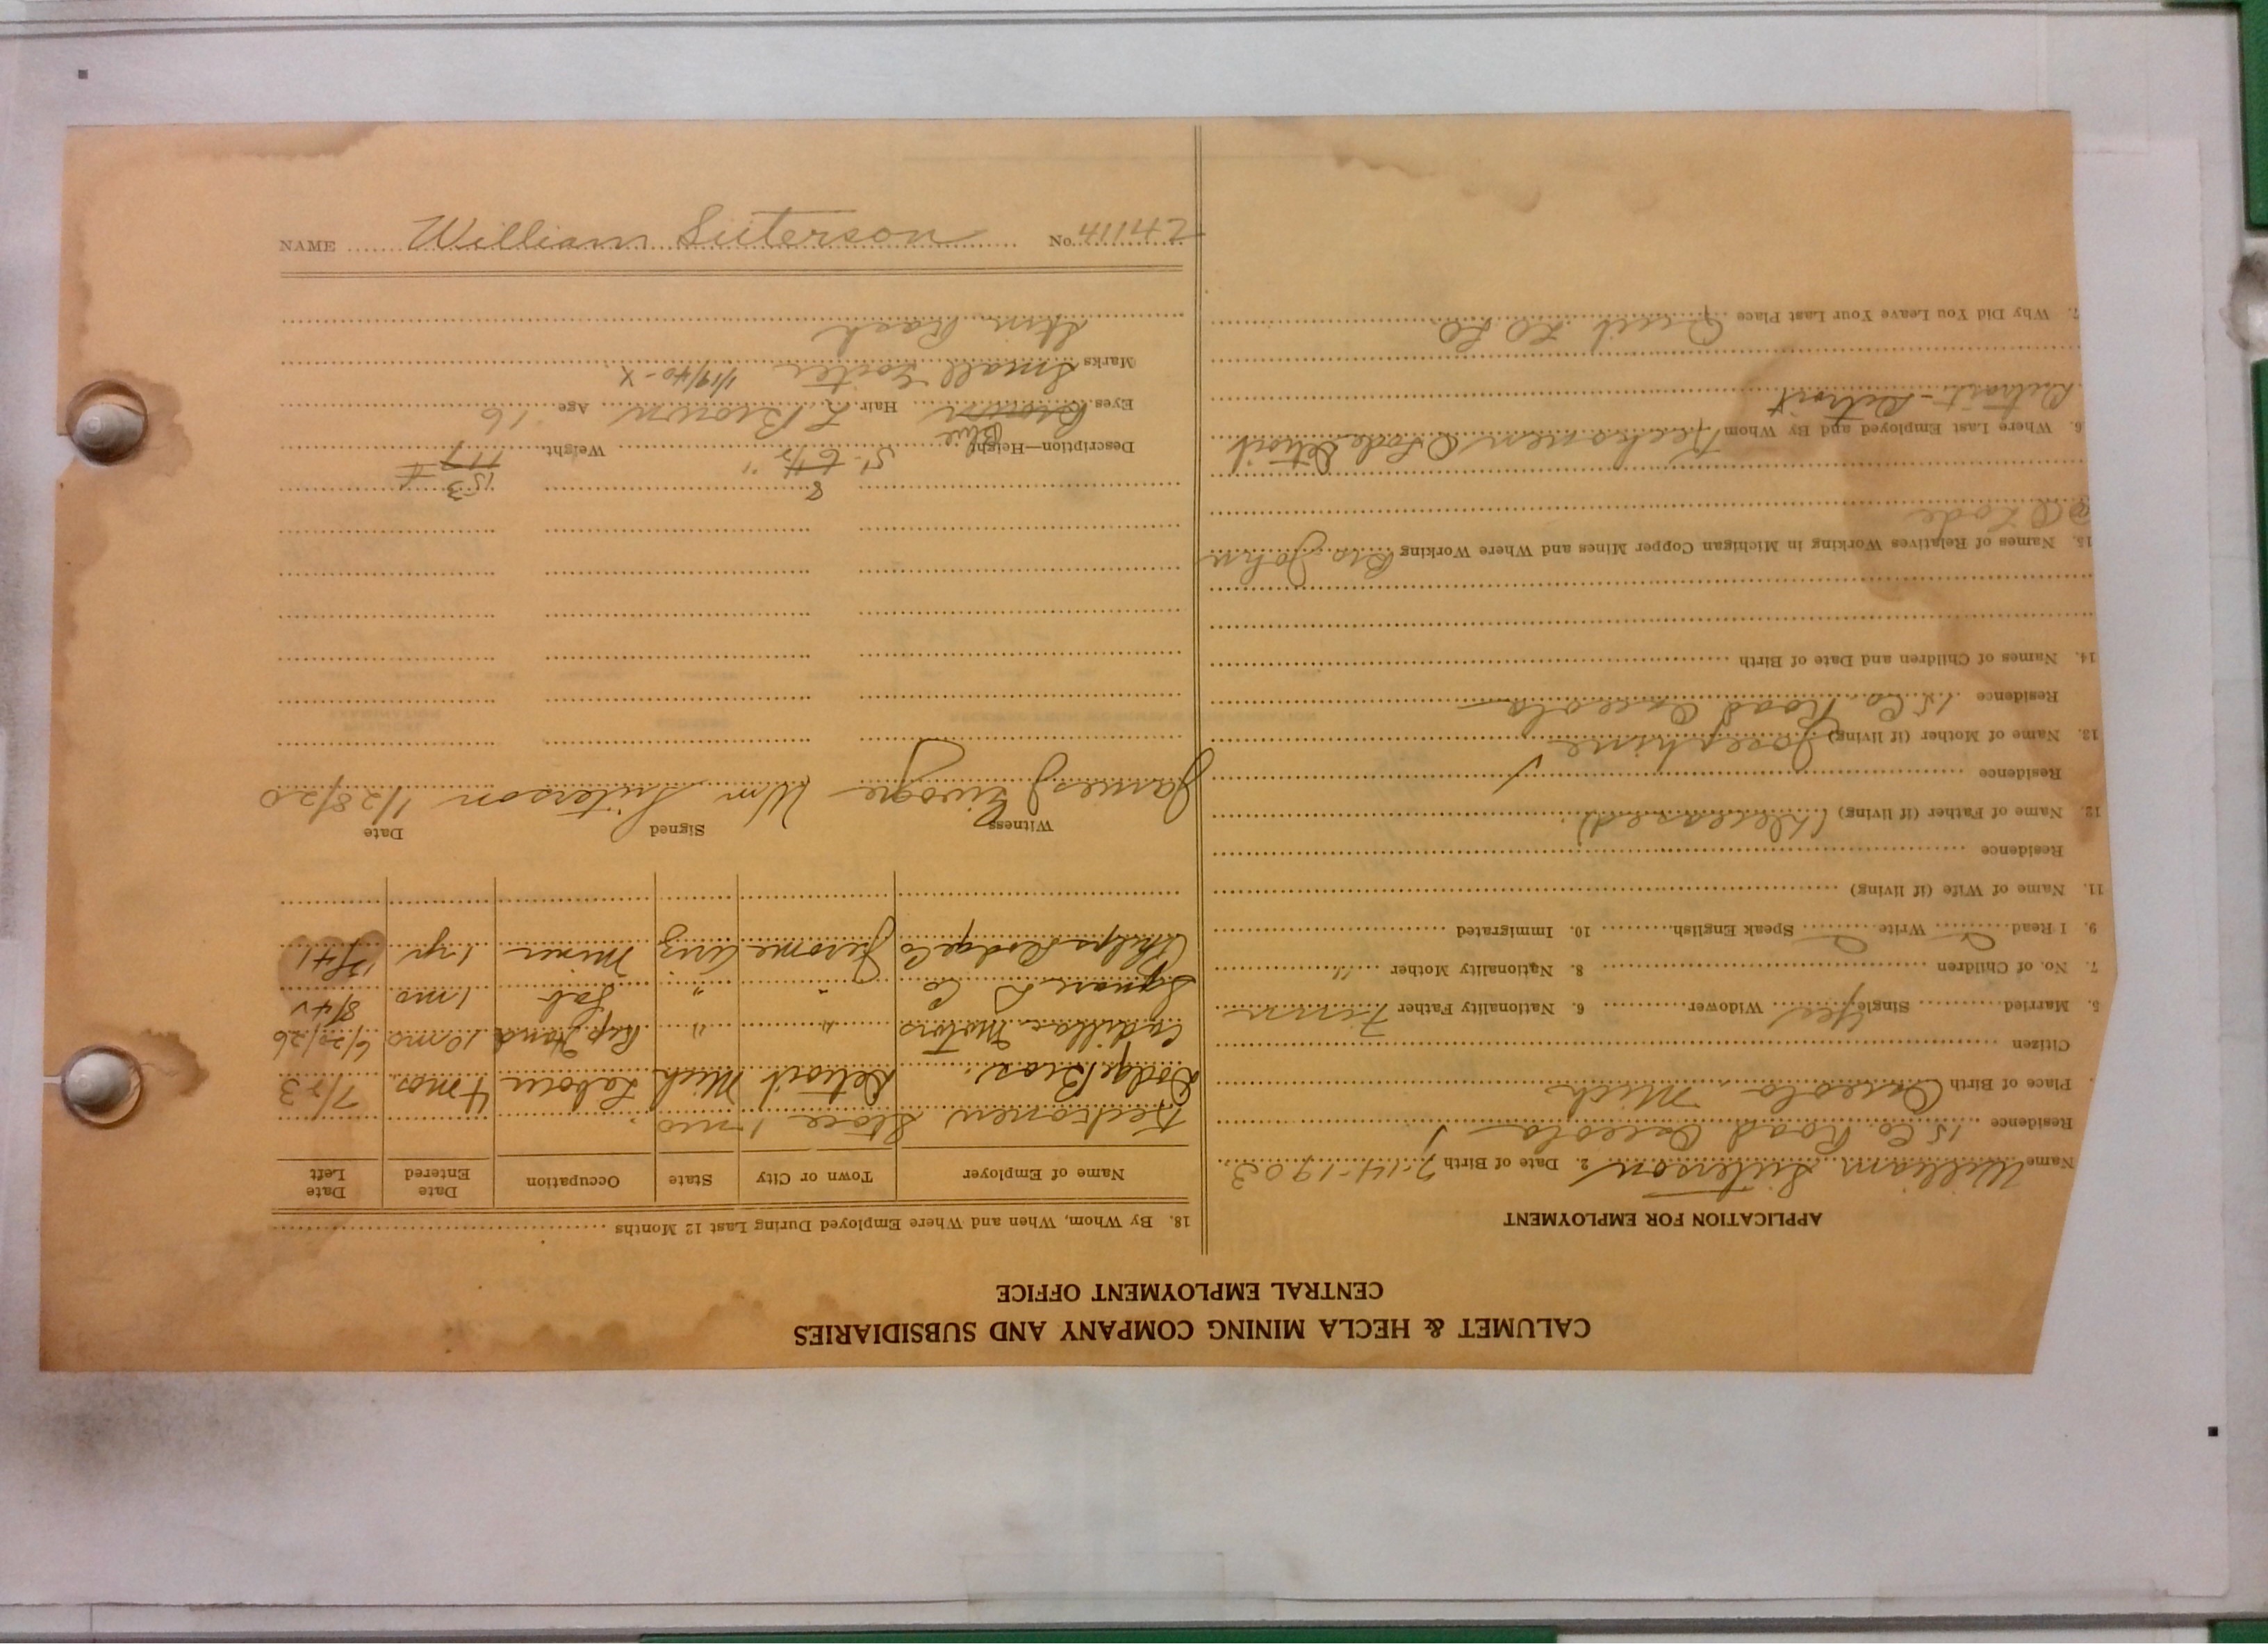 CALUMET & HECLA MINING COMPANY AND SUBSIDIARIES
CENTRAL EMPLOYMENT OFFICE
APPLICATION FOR EMPLOYMENT
Name William Siiterson 2. Date of Birth 7-14-1903
Residence 15 Co. Road Osceola
Place of Birth Osceola Mich
Citizen
5. Married Single Yes Widower 6. Nationality Father Finn
7. No. of Children 8. Nationality Mother "
9. I Read Write Speak English 10. Immigrated
11. Name of Wife (if living)
Residence
12. Name of Father (if living) (Deceased)
Residence
13. Name of Mother (if living) Josephine
Residence 15 Co. Road Osceola
14. Names of Children and Date of Birth
15. Names of Relatives Working in Michigan Copper Mines and Where Working Bro John
O Lode
6. Where Last Employed and By Whom O Lode Detroit
Detroit - Detroit
7. Why Did You Leave Your Last Place Quit LO LO
18. By Whom, When and Where Employed During Last 12 Months
Name of Employer Town or City State Occupation Date Entered Date Left
Store 1 mo
Dodge Bros. Detroit Mich Laborer 4 mos 7/23
Cadillac Motors " " Rep. Hand 10 mo 6/20/26
Square D Co " " Lab 1 mo 8/42
Phelps Dodge Co Jerome Ariz Miner 1 yr
Witness Signed Date
James Wm Siiterson 1/28/20
8 153 #
Description—Height 5'-6 1/2" Weight 117
Blue
Eyes Brown Hair L Brown Age 16
Marks Small Goiter 1/19/40-X
Skin Rash
NAME William Siiterson No. 41142